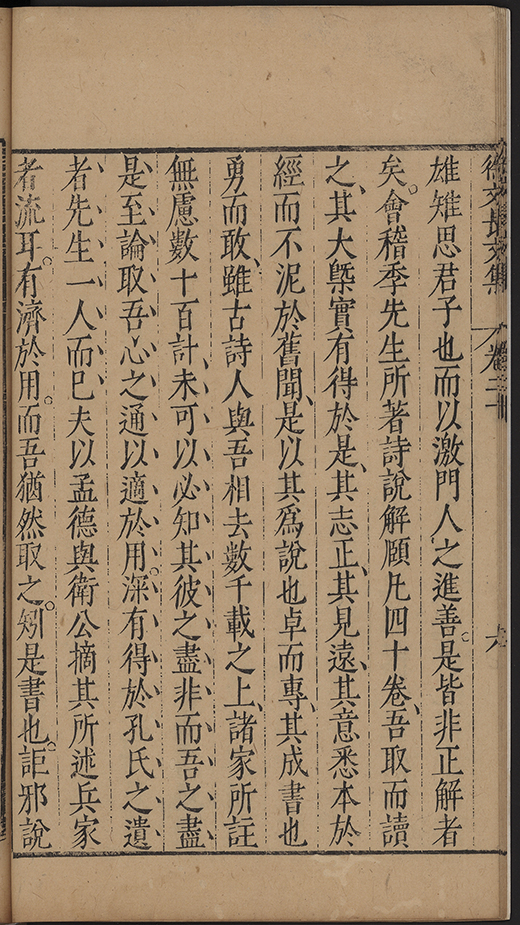 徐文長文集 卷二十 六
雄雉思君子也而以激門人之進善。是皆非正解者
矣。會稽季先生所著詩說解頤凡四十卷、吾取而讀
之、其大槩實有得於是、其志正、其見遠、其意悉本於
經而不泥於舊聞、是以其爲說也卓而專、其成書也
勇而敢、雖古詩人與吾相去數千載之上、諸家所註
無慮數十百計、未可以必知其彼之盡非而吾之盡
是、至論取吾心之通以適於用。深有得於孔氏之遺
者、先生一人而已夫以孟德與衛公摘其所述兵家
者流耳。有濟於用。而吾猶然取之。矧是書也。詎邪說